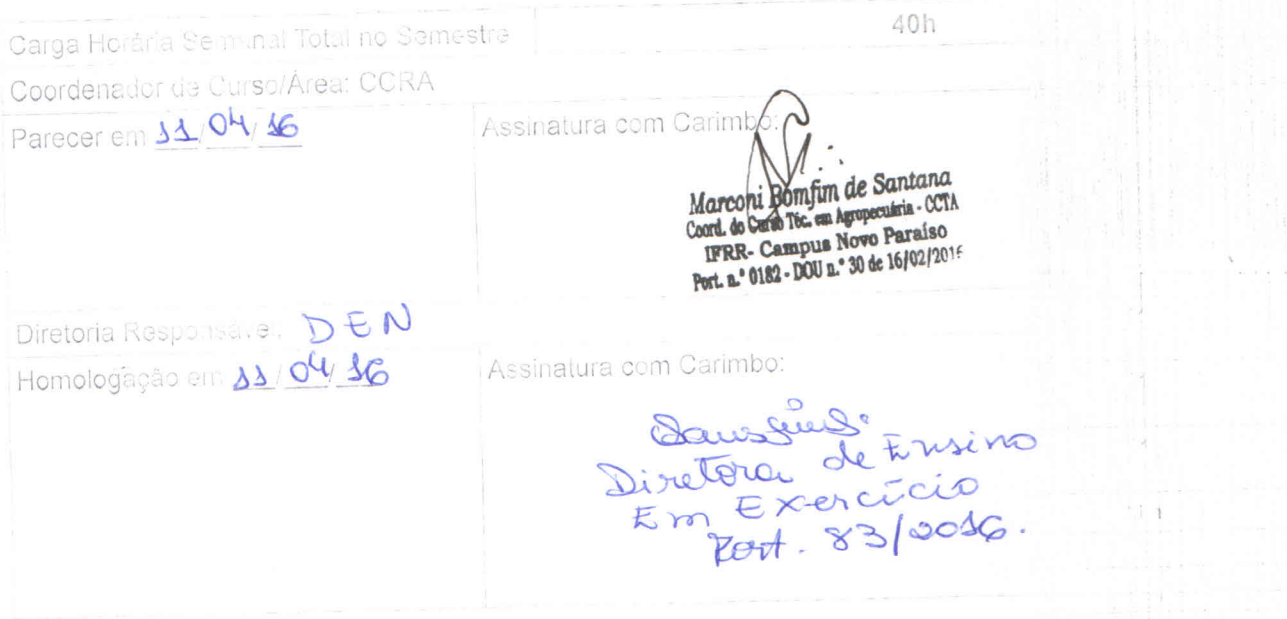 Carga Horária Semanal Total no Semestre 40h
Coordenador de Curso/Área: CCRA
Parecer em 11/04/16 Assinatura com Carimbo:
Marconi Bomfim de Santana
Coord. do Curso Téc. em Agropecuária - CCTA
IFRR- Campus Novo Paraíso
Port. n.º 0182 - DOU n.º 30 de 16/02/2016
Diretoria Responsável: DEN
Homologação em 11/04/16 Assinatura com Carimbo:
Diretora de Ensino
Em Exercício
Port. 83/2016.